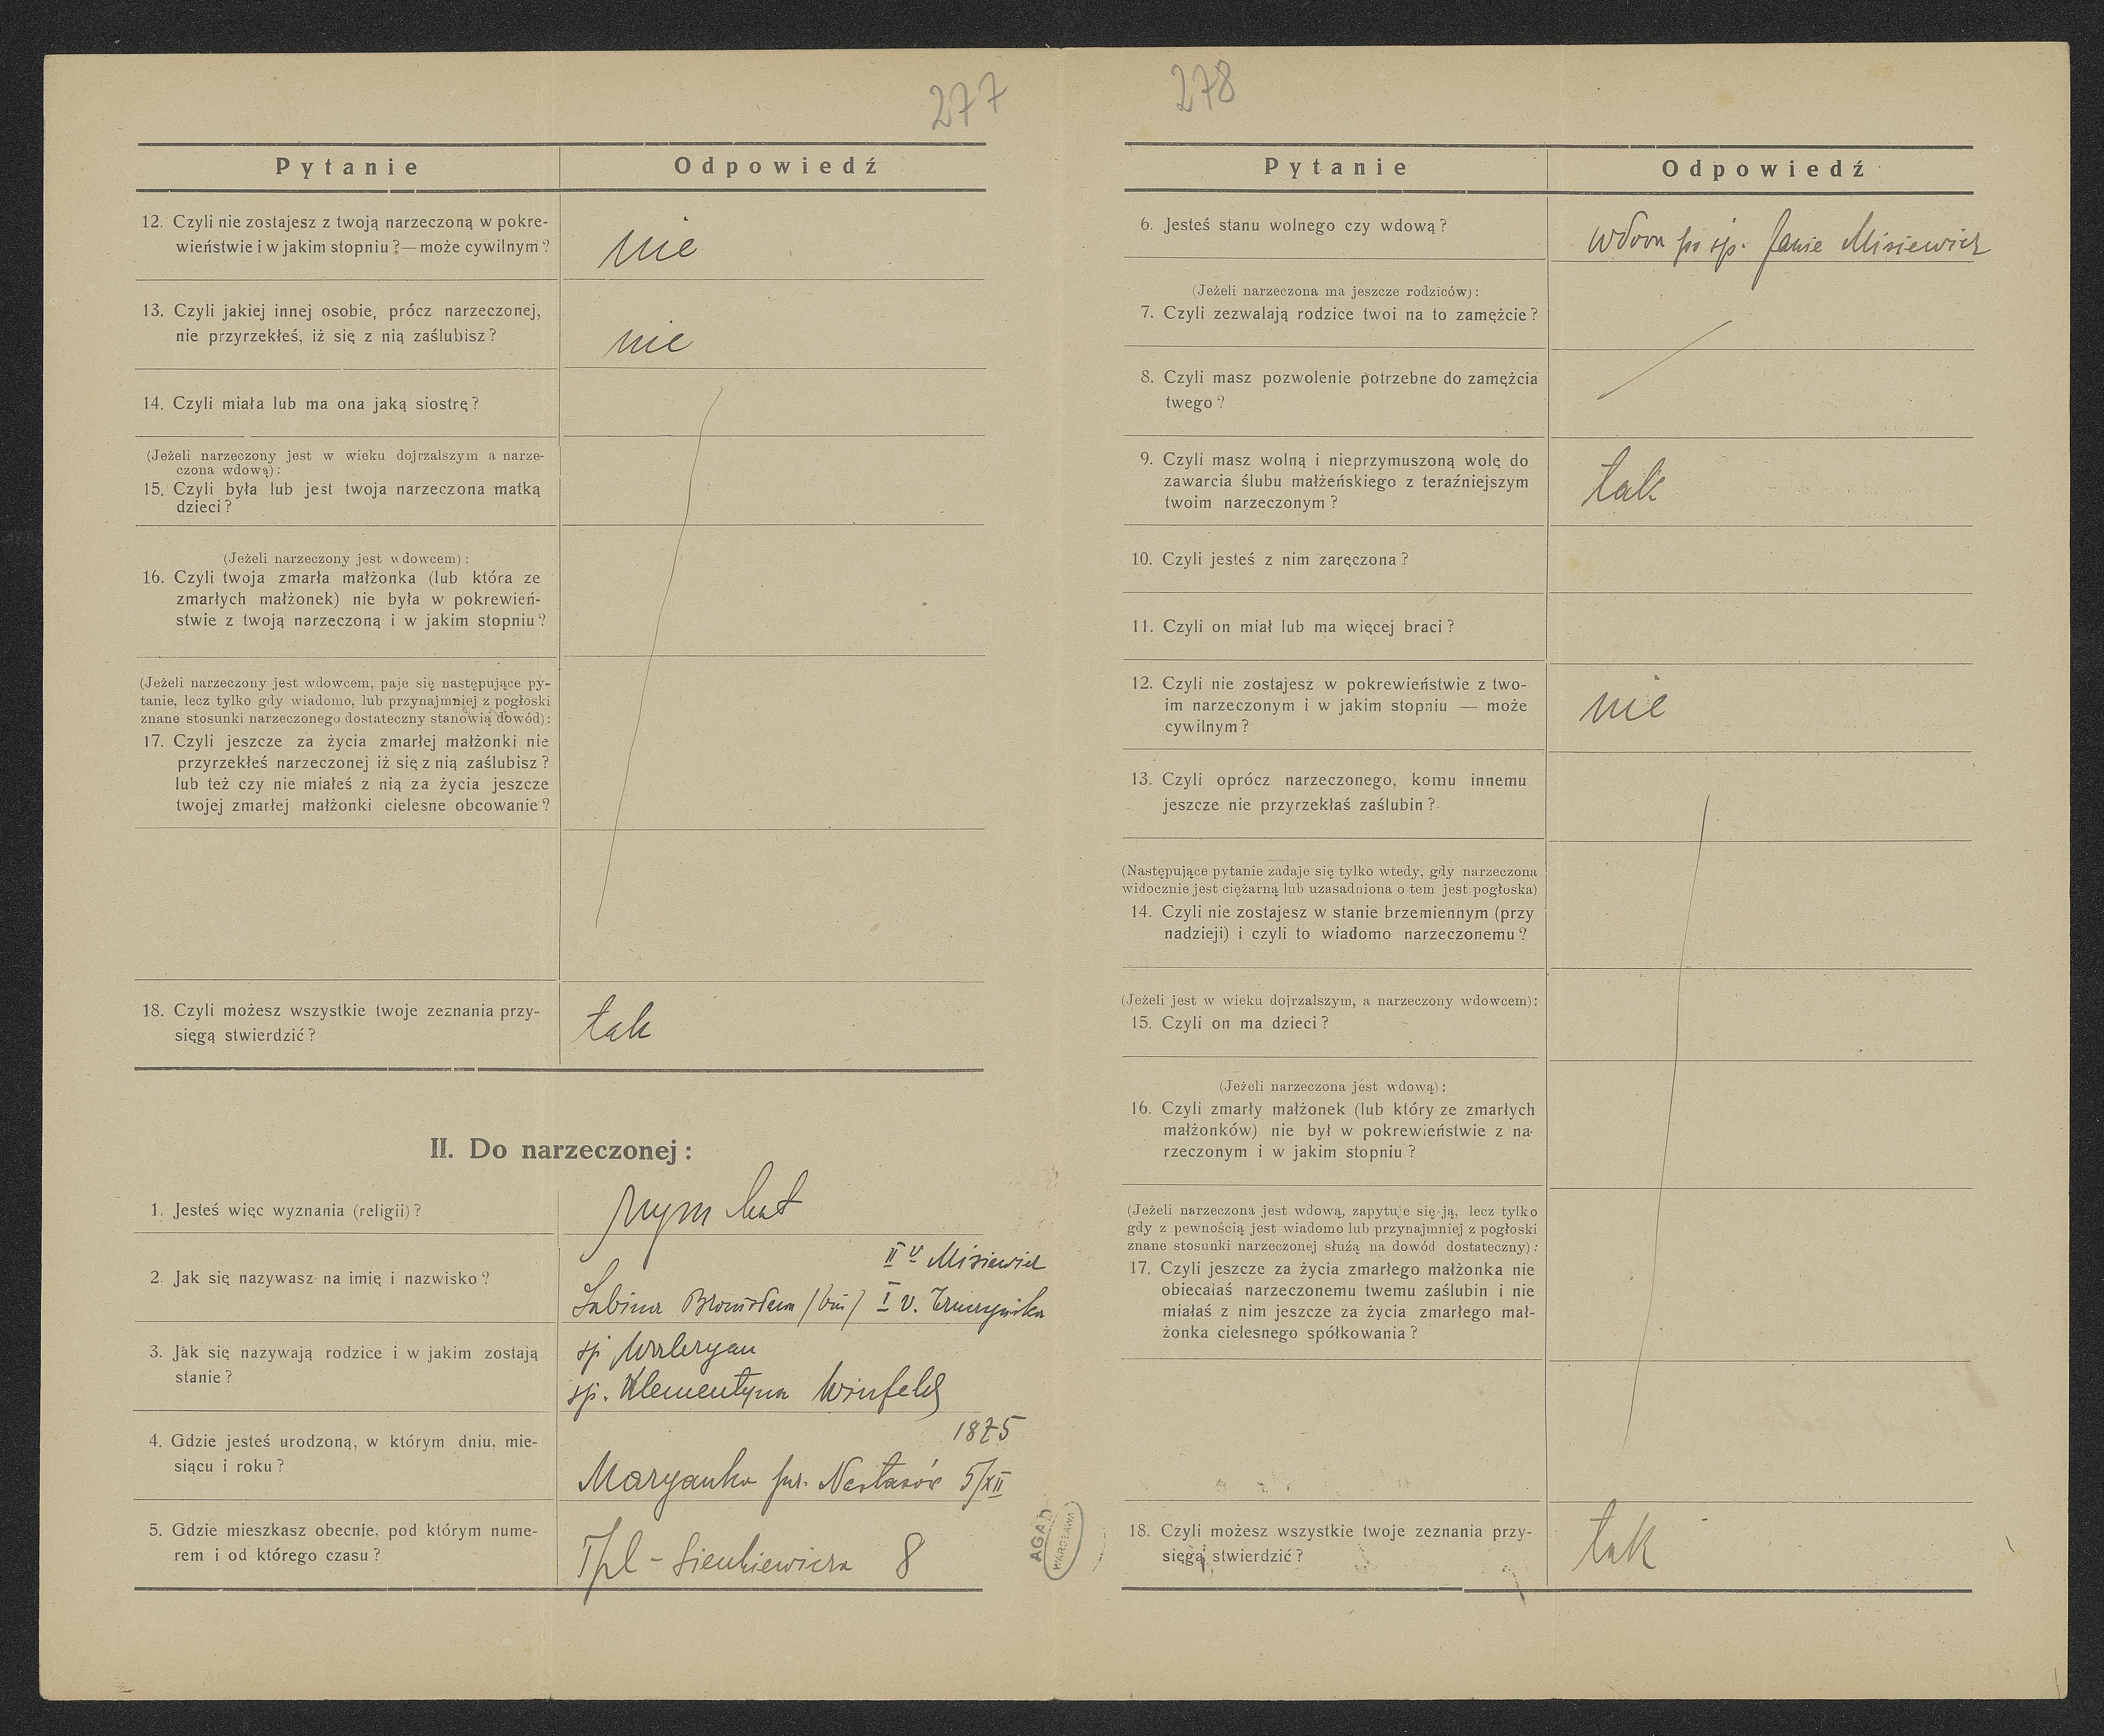 277
Pytanie Odpowiedź
12. Czyli nie zostajesz z twoją narzeczoną w pokre-
wieństwie i w jakim stopniu ?—może cywilnym ?
nie
13. Czyli jakiej innej osobie, prócz narzeczonej,
nie przyrzekłeś, iż się z nią zaślubisz ?
nie
14. Czyli miała lub ma ona jaką siostrę ?
(Jeżeli narzeczony jest w wieku dojrzalszym a narze-
czona wdową) :
15. Czyli była lub jest twoja narzeczona matką
dzieci ?
(Jeżeli narzeczony jest wdowcem) :
16. Czyli twoja zmarła małżonka (lub która ze
zmarłych małżonek) nie była w pokrewień-
stwie z twoją narzeczoną i w jakim stopniu ?
(Jeżeli narzeczony jest wdowcem, paje się następujące py-
tanie, lecz tylko gdy wiadomo, lub przynajmniej z pogłoski
znane stosunki narzeczonego dostateczny stanowią dowód) :
17. Czyli jeszcze za życia zmarłej małżonki nie
przyrzekłeś narzeczonej iż się z nią zaślubisz ?
lub też czy nie miałeś z nią za życia jeszcze
twojej zmarłej małżonki cielesne obcowanie ?
18. Czyli możesz wszystkie twoje zeznania przy-
sięgą stwierdzić ?
tak
II. Do narzeczonej :
1. Jesteś więc wyznania (religii) ?
rzym kat
2. Jak się nazywasz na imię i nazwisko ?
II v Misiewicz
Sabina I v.
3. Jak się nazywają rodzice i w jakim zostają
stanie ?
sp Waleryan
sp. Klementyna Winfeld
4. Gdzie jesteś urodzoną, w którym dniu, mie-
siącu i roku ?
1875
Maryanka pow. Nastasów 5/XII
5. Gdzie mieszkasz obecnie, pod którym nume-
rem i od którego czasu ?
Tpl - Sienkiewicza 8
AGAD
WARSZAWA
278
Pytanie Odpowiedź
6. Jesteś stanu wolnego czy wdową ?
wdowa po sp. Janie Misiewicz
(Jeżeli narzeczona ma jeszcze rodziców) :
7. Czyli zezwalają rodzice twoi na to zamężcie ?
8. Czyli masz pozwolenie potrzebne do zamężcia
twego ?
9. Czyli masz wolną i nieprzymuszoną wolę do
zawarcia ślubu małżeńskiego z teraźniejszym
twoim narzeczonym ?
tak
10. Czyli jesteś z nim zaręczona ?
11. Czyli on miał lub ma więcej braci ?
12. Czyli nie zostajesz w pokrewieństwie z two-
im narzeczonym i w jakim stopniu — może
cywilnym ?
nie
13. Czyli oprócz narzeczonego, komu innemu
jeszcze nie przyrzekłaś zaślubin ?
(Następujące pytanie zadaje się tylko wtedy, gdy narzeczona
widocznie jest ciężarną lub uzasadniona o tem jest pogłoska)
14. Czyli nie zostajesz w stanie brzemiennym (przy
nadzieji) i czyli to wiadomo narzeczonemu ?
(Jeżeli jest w wieku dojrzalszym, a narzeczony wdowcem) :
15. Czyli on ma dzieci ?
(Jeżeli narzeczona jest wdową) :
16. Czyli zmarły małżonek (lub który ze zmarłych
małżonków) nie był w pokrewieństwie z na-
rzeczonym i w jakim stopniu ?
(Jeżeli narzeczona jest wdową, zapytuje się ją, lecz tylko
gdy z pewnością jest wiadomo lub przynajmniej z pogłoski
znane stosunki narzeczonej służą na dowód dostateczny) :
17. Czyli jeszcze za życia zmarłego małżonka nie
obiecałaś narzeczonemu twemu zaślubin i nie
miałaś z nim jeszcze za życia zmarłego mał-
żonka cielesnego spółkowania ?
18. Czyli możesz wszystkie twoje zeznania przy-
sięgą stwierdzić ?
tak